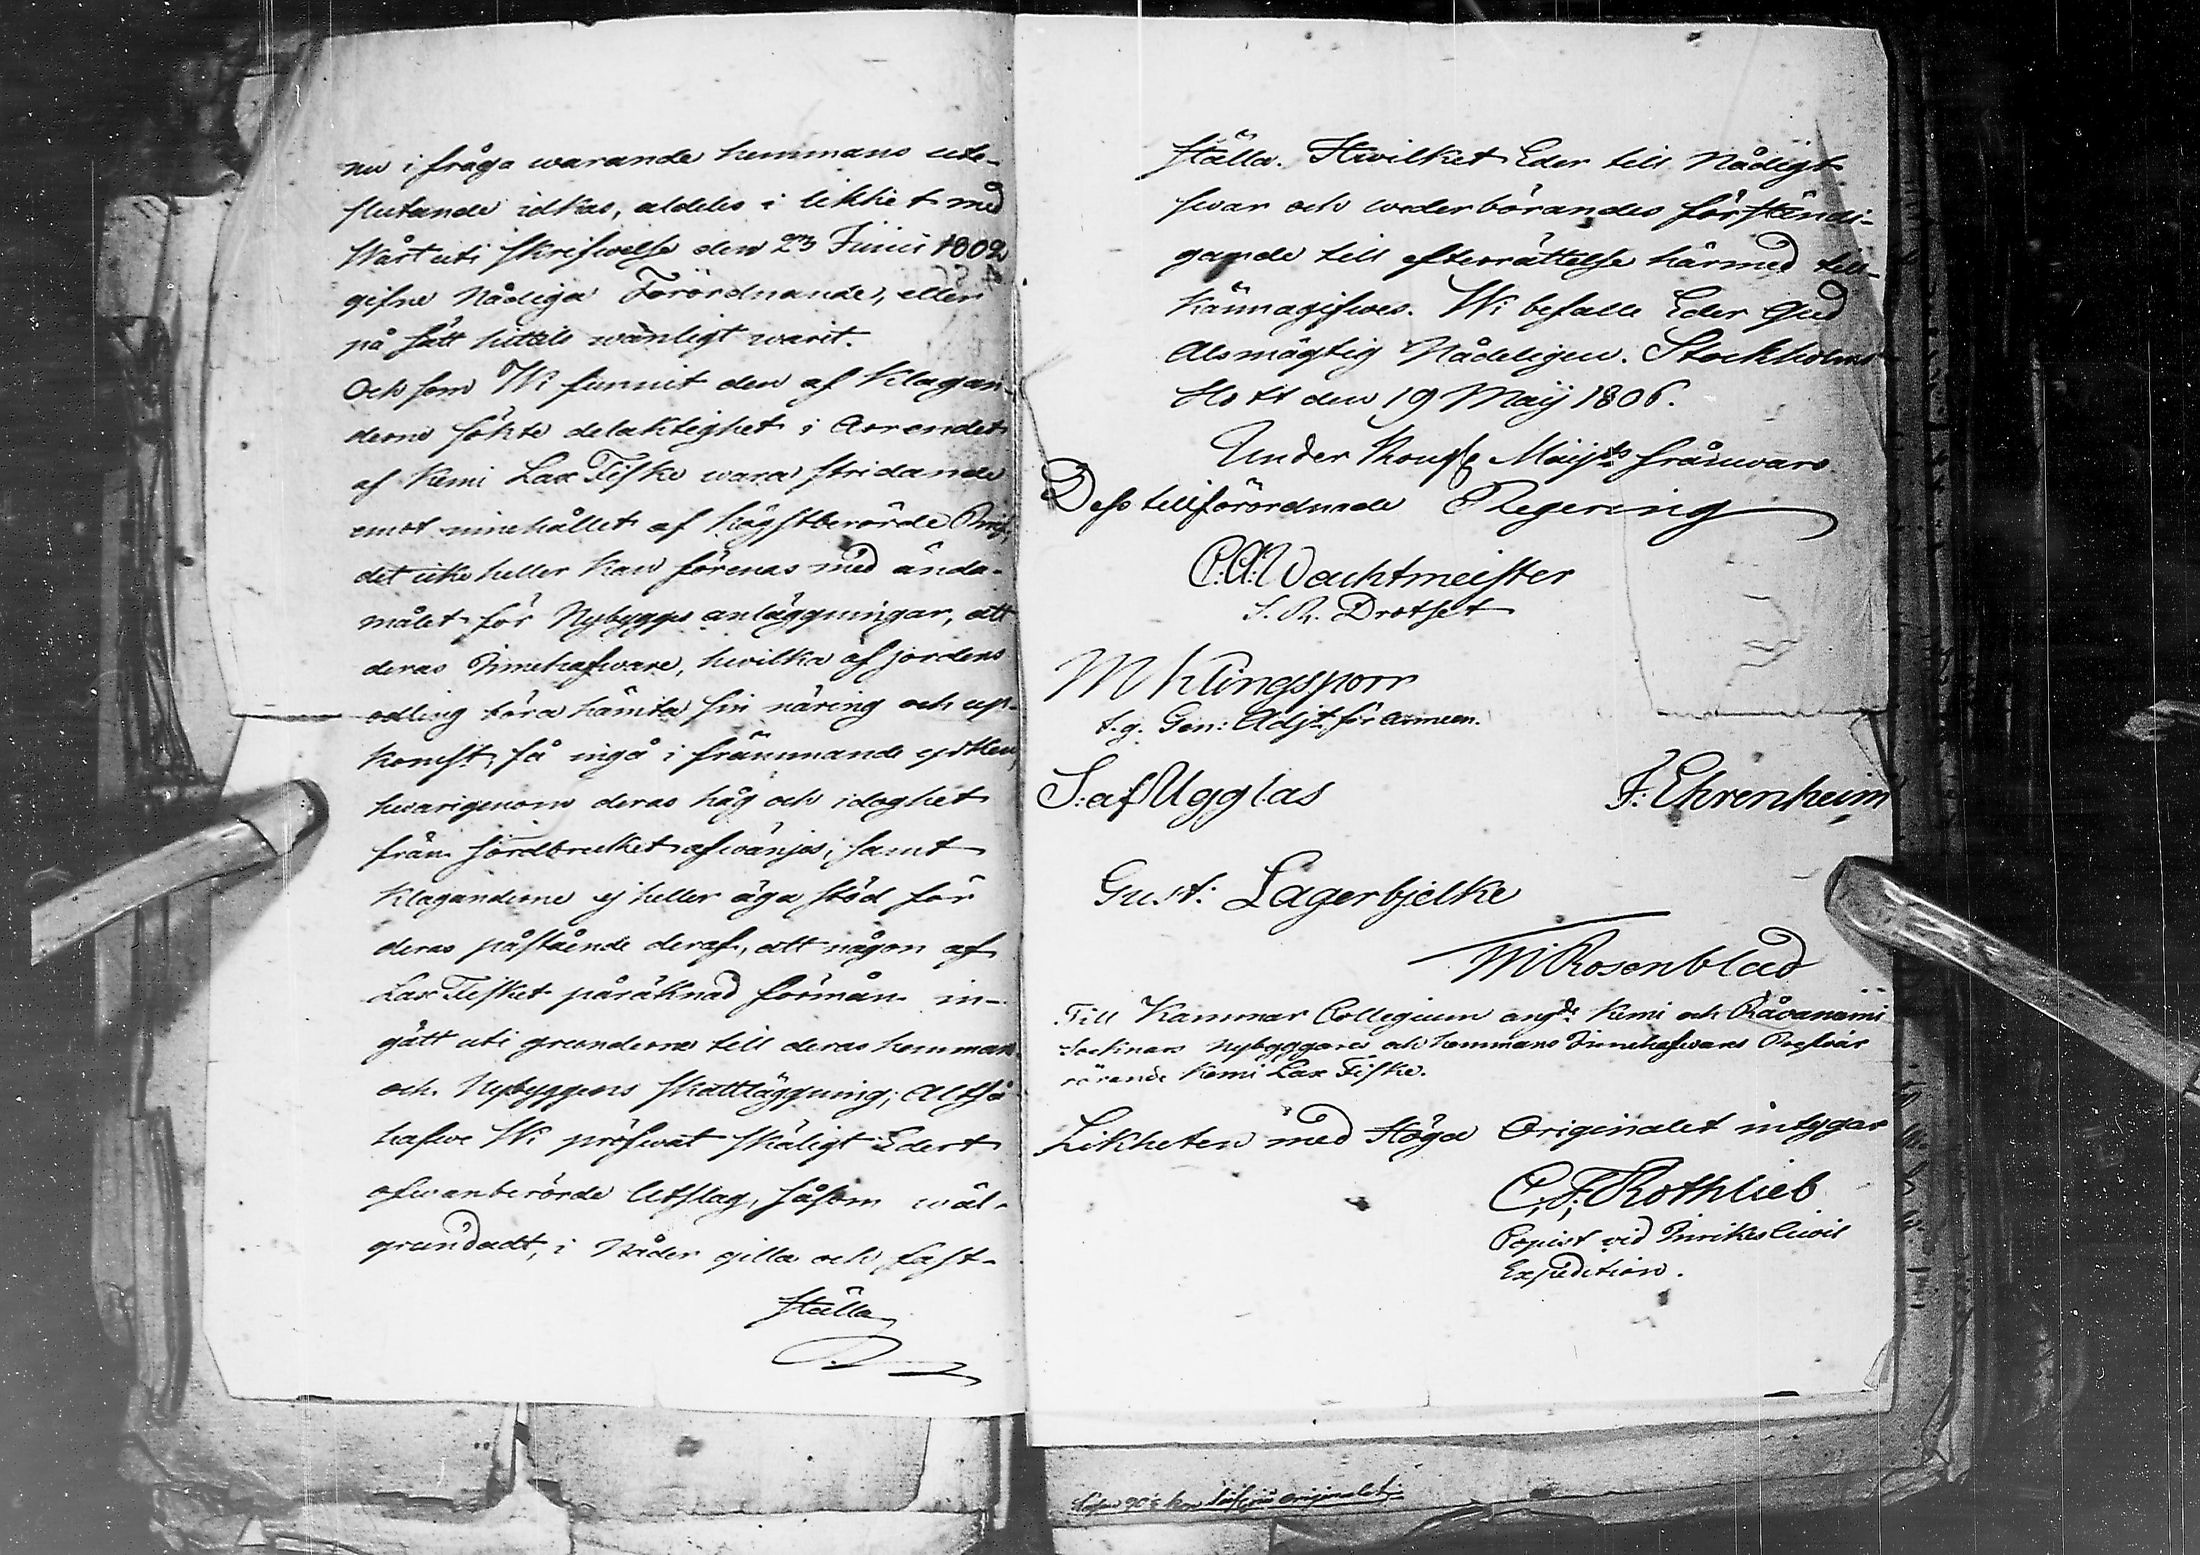 nu i fråga warande hemmans ute-
slutande idkas, aldeles i likhet med
Wårt uti skrifwelse den 23 Junii 1802
gifne Nådiga Förordnande, eller
på sätt hittils wanligt warit.
Och som Wi funnit den af Klagan-
derne sökte delaktighet i Arrendet
af Kemi Lax Fiske wara stridande
emot innehållet af högstberörde Bref,
det icke heller kan förenas med ända-
målet för Nybygges anläggningar, att
deras Innehafware, hwilka af jordens
odling böra hämta sin näring och up-
komst, få ingå i främmande yrken,
hwarigenom deras håg och idoghet
från jordbruket afwänjes, samt
Klaganderne ej heller äga stöd för
deras påstående deraf, att någon af
Lax Fisket påräknad förmån in-
gått uti grunderne till deras hemmans
och Nybyggens skattläggning; Altså
hafwe Wi pröfwat skäligt Edert
ofwanberörde Utslag, såsom wäl-
grundadt, i Nåder gilla och fast-
ställa
ställa. Hwilket Eder till Nådigt
swar och wederbörandes förständi-
gande till efterrättelse härmed till-
kännagifwes. Wi befalle Eder Gud
Alsmägtig Nådeligen. Stockholms
Slott den 19 Maij 1806.
Under Kongl. Maij:ts frånwaro
Dess tillförordnade Regering
C:A: Wachtmeister
S. R. Drotset
M Klingsporr
t.g. Gen: Adjt för Armeen.
S: af Ugglas F: Ehrenheim
Gust: Lagerbjelke
M Rosenblad
Till Kammar Collegium angde Kemi och Råvaniemi
Socknars Nybyggares och hemmans Innehafwares Beswär
rörande Kemi Lax Fiske.
Likheten med Höga Originalet intygar
C: F: Rothlieb
Copist vid Inrikes Civil
Expedition.
originalet